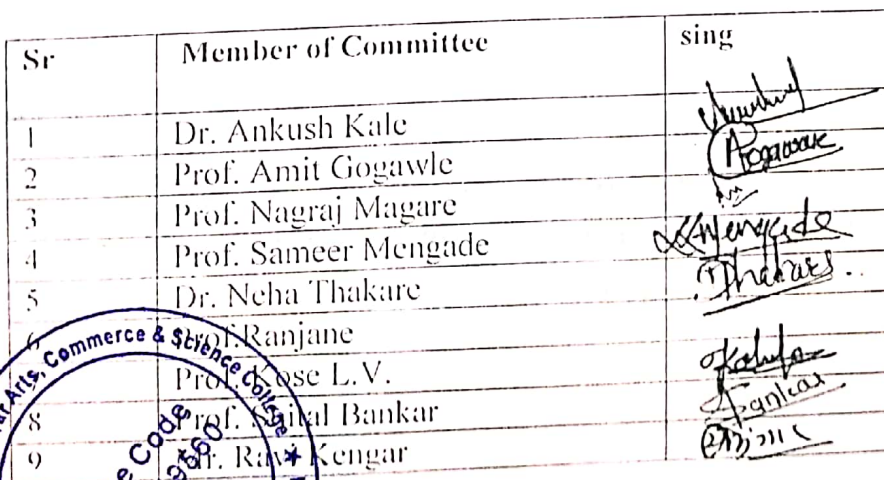 Sr Member of Committee sing
1 Dr. Ankush Kale
2 Prof. Amit Gogawle
3 Prof. Nagraj Magare
4 Prof. Sameer Mengade Mengade
5 Dr. Neha Thakare Thakare
6 Prof.Ranjane
Prof. Kose L.V.
8 Prof. Shital Bankar Bankar
9 Mr. Ravi Kengar
Arts, Commerce & Science College *
Code